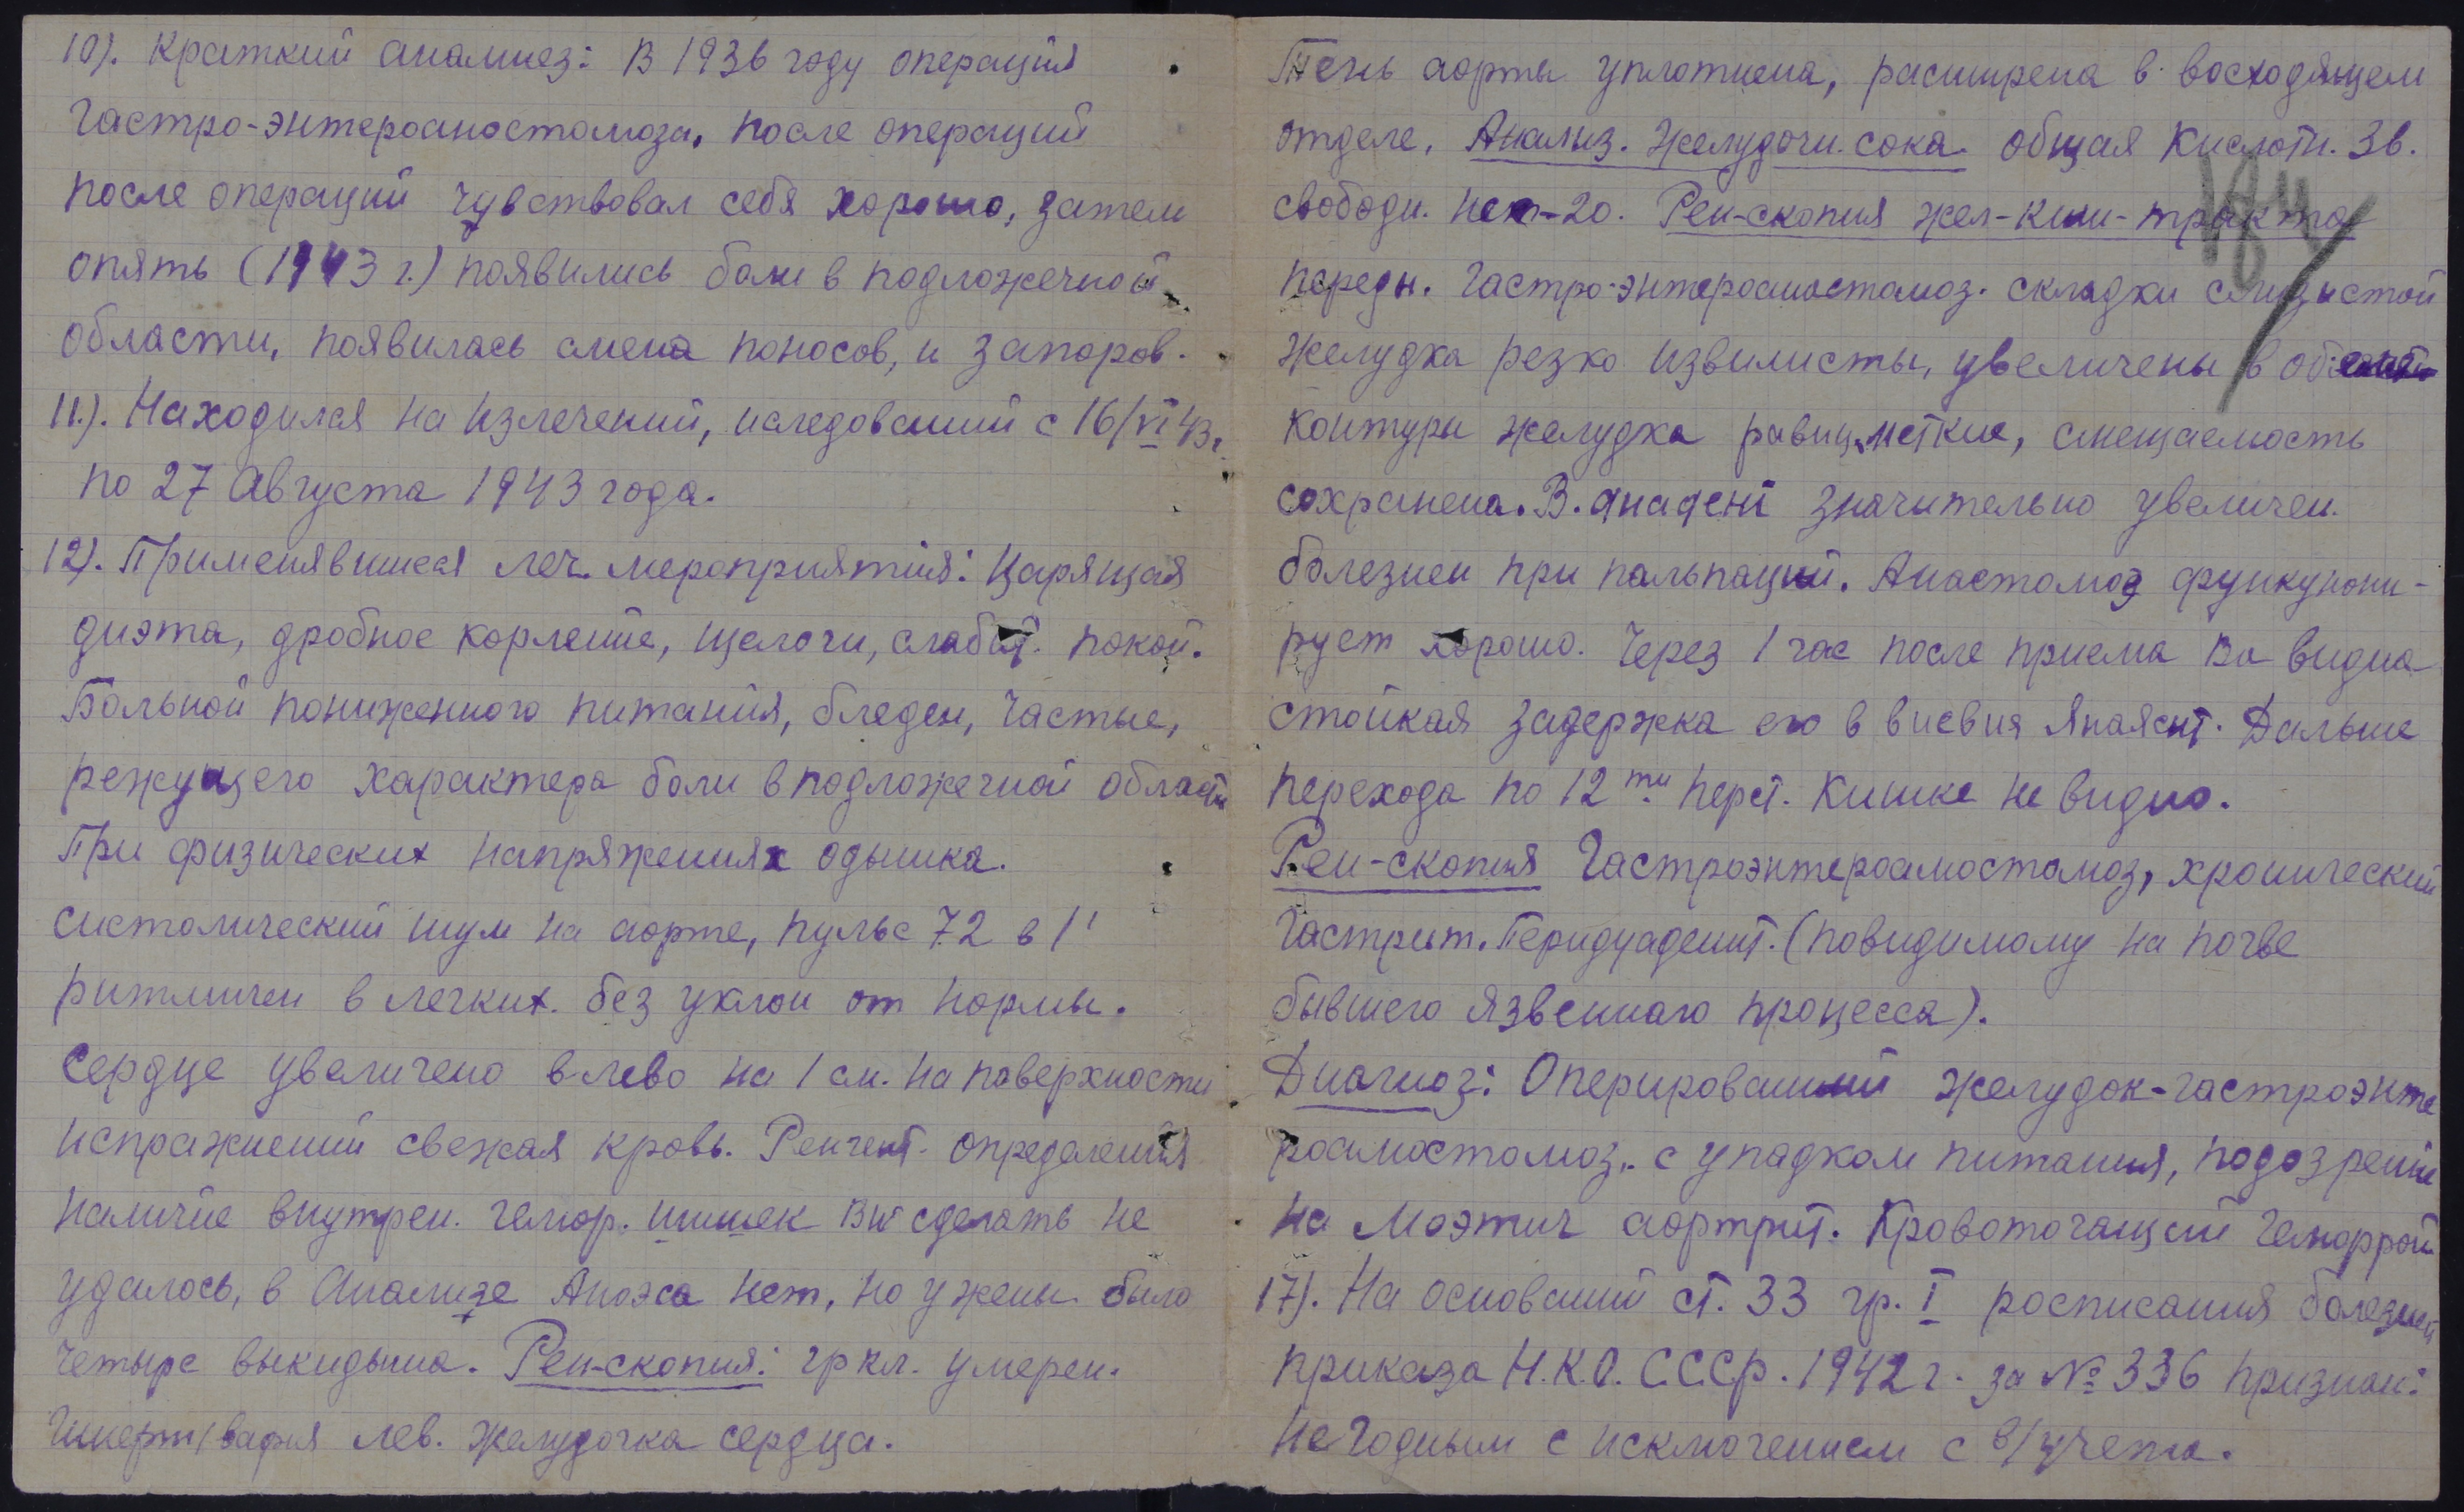 10). Краткий анамнез: В 1936 году операция
Гастро-энтероаностомоза, после операций
после операций чувствовал себя хорошо, затем
опять (1943 г.) появились боли в подложечной
области, появилась смена поносов, и запоров.
11.). Находился на излечений, иследований с 16/VI 43 г.
по 27 Августа 1943 года.
12). Применявшиеся леч. мероприятия: Щарящая
диэта, дробное кормление, щелочи, слабит. покой.
Больной пониженного питания, бледен, частые,
режущего характера боли в подложечной области
При физических напряжениях одышка.
систолический шум на аорте, пульс 72 в 1'
ритмичен в легких. без уклон от нормы.
Сердце увеличено в лево на 1 см. на поверхности
испражнений свежая кровь. Ренгент. определения
наличие внутрен. гемор. шишек BW сделать не
удалось, в Анамнезе нет, но у жены было
четыре выкидыша. Рен-скопия: гр кл. умерен.
лев. желудочка сердца.
Тень аорты уплотнена, расширена в восходящем
отделе. Анализ. Желудочн. сока. общая Кислотн. 36.
свободн. нет-20. Рен-скопия жел-киш-тракта
184
Передн. Гастро-энтероаностомоз. складки слизыстой
желудка резко извилисты, увеличены в
контуры желудка равны, меткие, смещаемость
сохранена. В. значительно увеличен.
болезнен при пальпаций. Анастомоз функциони-
рует хорошо. Через 1 час после приема Ва видна
стойкая задержка его в Дальше
перехода по 12ти перст. кишке не видно.
Рен-скопия Гастроэнтероаностомоз, хронический
гастрит. Перидуаденит. (повидимому на почве
бывшего язвеннаго процесса).
Диагноз: Оперированный желудок-гастроэнте
роаностомоз. с упадком питания, подозрение
на аортрит. Кровоточащий Геморрой
17). На оснований ст. 33 гр. I росписания болезней
приказа Н.К.О. С.С.С.р. 1942 г. за № 336 признан:
не годным с исключением с в/учета.